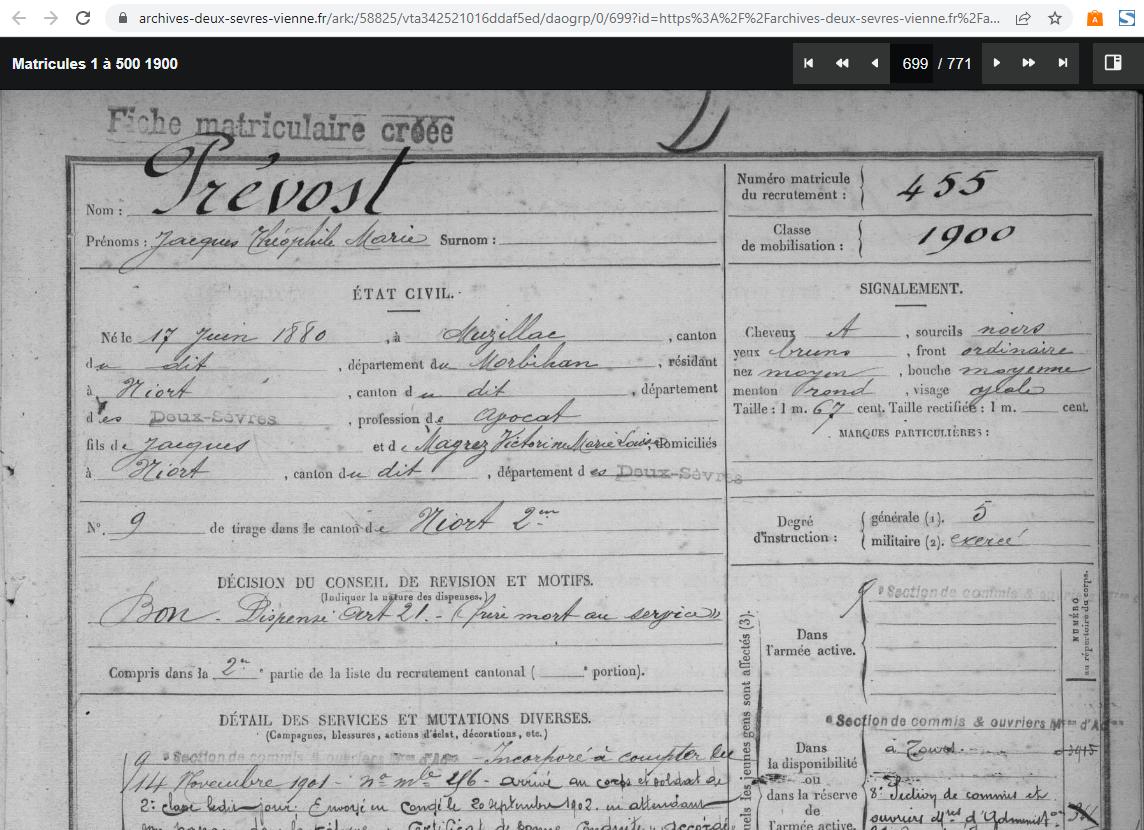 archives-deux-sevres-vienne.fr/ark:/58825/vta342521016ddaf5ed/daogrp/0/699?id=https%3A%2F%2Farchives-deux-sevres-vienne.fr%2Fa...
Matricules 1 à 500 1900
699 / 771
Fiche matriculaire créée
Nom : Prévost
Prénoms : Jacques Théophile Marie Surnom :
Numéro matricule du recrutement : 455
Classe de mobilisation : 1900
ÉTAT CIVIL.
Né le 17 Juin 1880, à Muzillac, canton
du dit, département du Morbihan, résidant
à Niort, canton du dit, département
des Deux-Sèvres, profession de avocat
fils de Jacques et de Magrez Victorine Marie Louise, domiciliés
à Niort, canton du dit, département des Deux-Sèvres
N° 9 de tirage dans le canton de Niort 2me
SIGNALEMENT.
Cheveux, sourcils noirs
yeux bruns, front ordinaire
nez moyen, bouche moyenne
menton rond, visage ovale
Taille : 1 m. 67 cent. Taille rectifiée : 1 m. cent.
MARQUES PARTICULIÈRES :
Degré d'instruction :
générale (1). 5
militaire (2). exercé
DÉCISION DU CONSEIL DE REVISION ET MOTIFS.
(Indiquer la nature des dispenses.)
Bon - Dispensé art 21. - (frère mort au service)
Compris dans la 2e partie de la liste du recrutement cantonal ( portion).
DÉTAIL DES SERVICES ET MUTATIONS DIVERSES.
(Campagnes, blessures, actions d'éclat, décorations, etc.)
9e Section de commis & ouvriers - Incorporé à compter du
14 Novembre 1901 - n° mle - arrivé au corps et soldat de
2e classe ledit jour. Envoyé en congé le 20 septembre 1902. en attendant
Certificat de bonne conduite accordé
uels les jeunes gens sont affectés (3).
Dans l'armée active.
9e Section de commis & ouvriers
NUMÉRO
au répertoire du corps.
Dans la disponibilité ou dans la réserve de l'armée active.
9e Section de commis & ouvriers
à Tours.
8e Section de commis et
ouvriers d'Administ